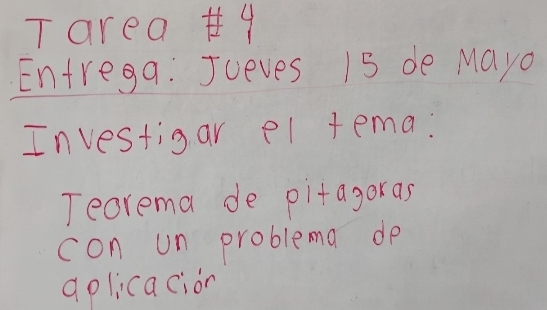 Tarea # 4
Entrega: Jueves 15 de Mayo
Investigar el tema:
Teorema de pitagoras
con un problema de
aplicación